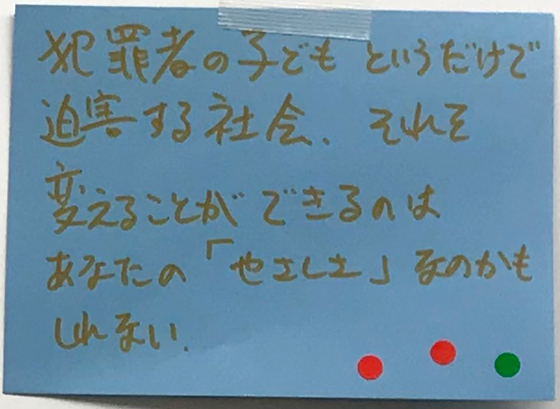 犯罪者の子どもというだけで
迫害する社会、それを
変えることができるのは
あなたの「やさしさ」なのかも
しれない.